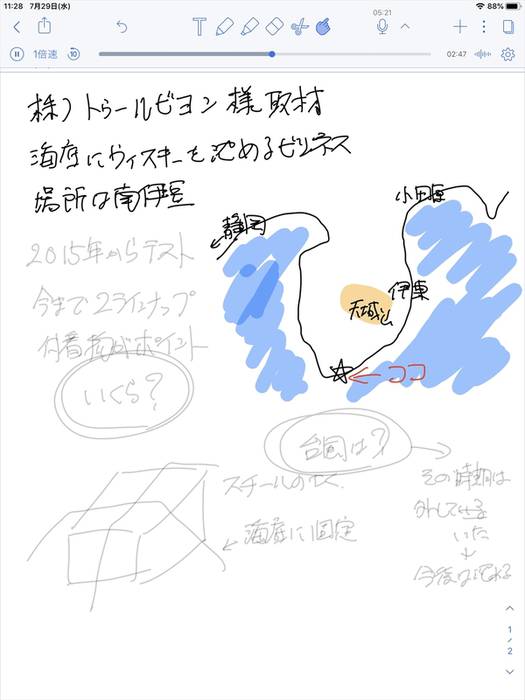 11:28 7月29日(水)
88%
05:21
1倍速
02:47
株)トゥールビヨン様取材
海底にウィスキーを沈めるビジネス
場所は南伊豆
小田原
静岡
2015年からテスト
伊東
今まで2ラインナップ
天城山
ポイント
ココ
いくら?
台風は?
スチールの
その時期は
海底に固定
外して
いた
↓
今後は
1
/
2